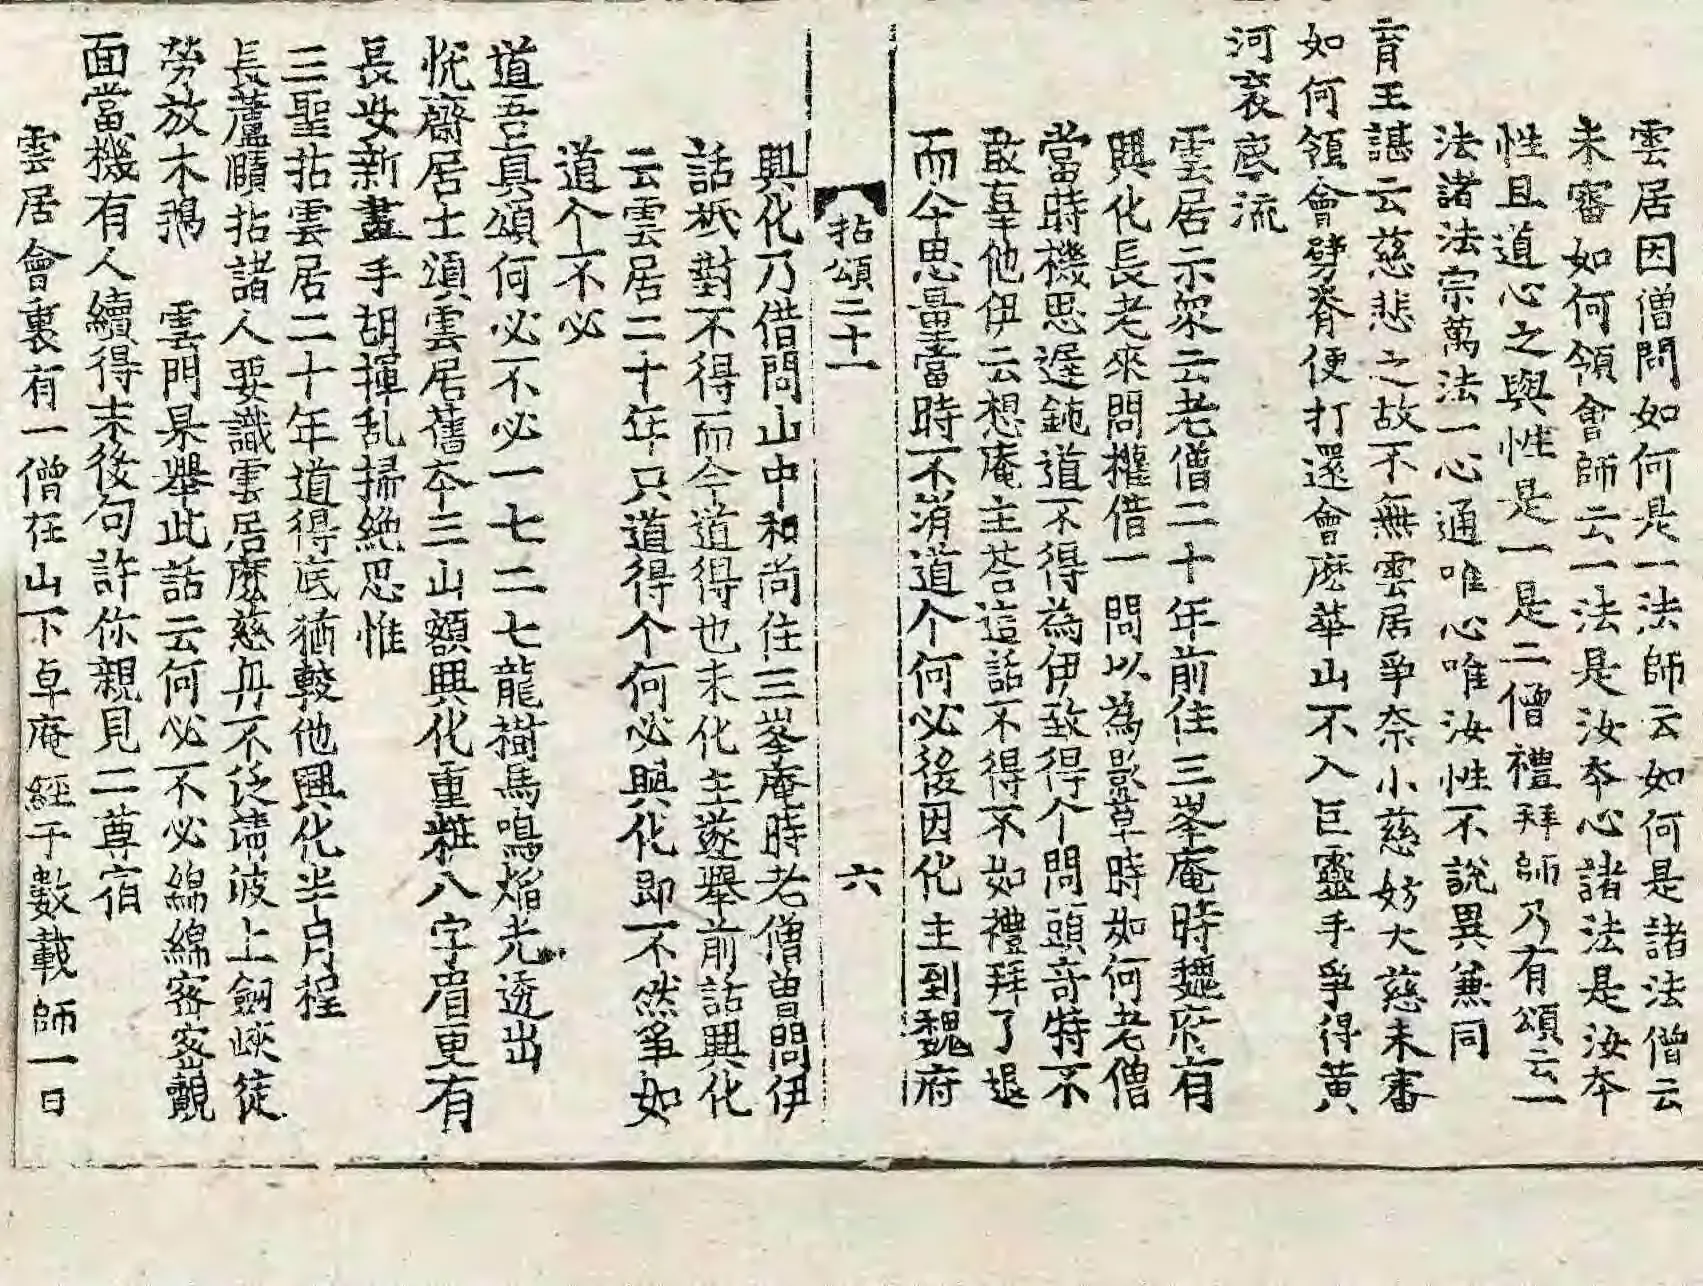 雲居因僧問如何是一法師云如何是諸法僧云
未審如何領會師云一法是汝夲心諸法是汝夲
性且道心之與性是一是二僧禮拜師乃有頌云一
法諸法宗萬法一心通唯心唯汝性不說異兼同
育王諶云慈悲之故不無雲居爭奈小慈妨大慈未審
如何領會劈脊便打還會麽華山不入巨靈手爭得黃
河衮底流
雲居示衆云老僧二十年前住三峯庵時魏府有
興化長老來問權借一問以為影草時如何老僧
當時機思遅鈍道不得為伊致得个問頭竒特不
敢辜他伊云想庵主荅這話不得不如禮拜了退
而今思量當時不消道个何必後因化主到魏府
拈頌二十一 六
興化乃借問山中和尚住三峯庵時老僧曾問伊
話秖對不得而今道得也未化主遂舉前話興化
云雲居二十年只道得个何必興化即不然爭如
道个不必
道吾真頌何必不必一七二七龍樹馬鳴焰光透出
恱齋居士頌雲居舊夲三山額興化重粧八字眉更有
長安新畫手胡揮乱掃絶思惟
三聖拈雲居二十年道得底猶較他興化半月程
長蘆賾拈諸人要識雲居麽慈舟不泛淸波上劒峽徒
勞放木鵝 雲門杲舉此話云何必不必綿綿密密覿
面當機有人續得末後句許你親見二尊宿
雲居會裏有一僧在山下卓庵經于數載師一日